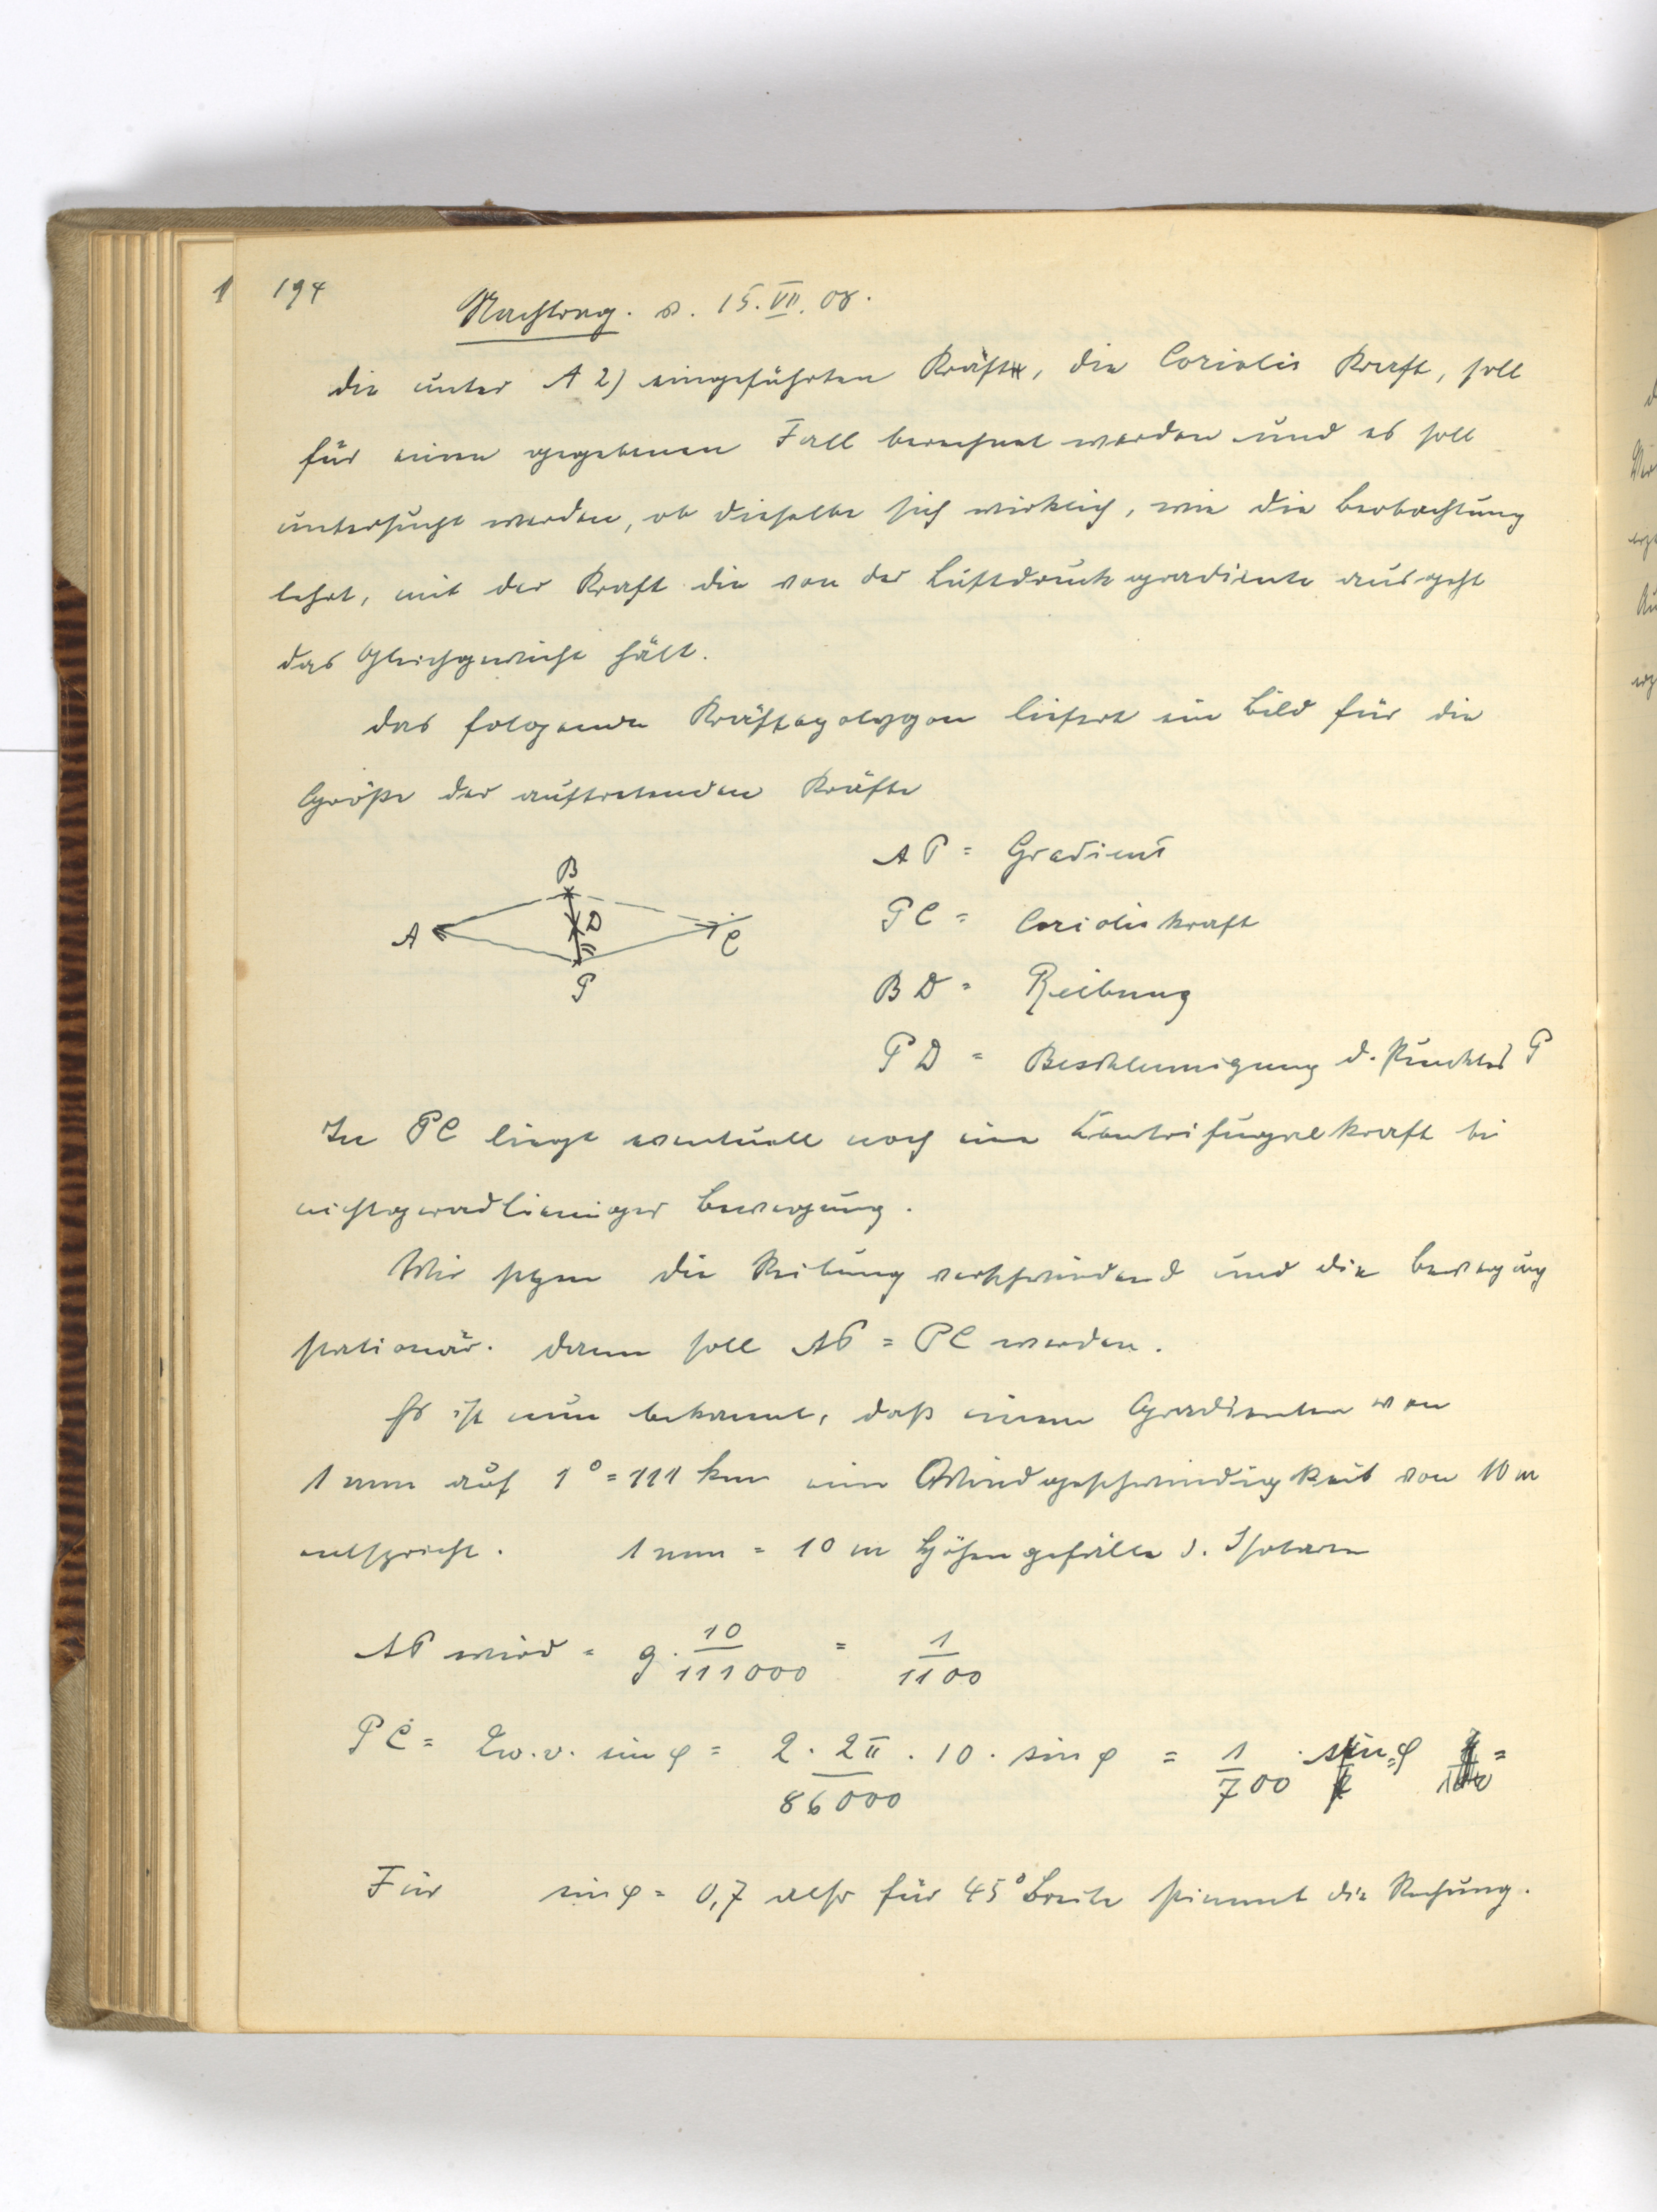 1 194
Nachtrag. v. 15. VII. 08.
Die unter A 2) eingeführten Kräfte, die Coriolis Kraft, soll
für einen gegebenen Fall berechnet werden und es soll
untersucht werden, ob dieselbe sich wirklich, wie die Beobachtung
lehrt, mit der Kraft die von der Luftdruckgradiente ausgeht
das Gleichgewicht hält.
Das folgende Kräftepolygon liefert ein Bild für die
Größe der auftretenden Kräfte
AP = Gradient
B
D
A
C
P
PC = Corioliskraft
BD = Reibung
PD = Beschleunigung d. Punktes P
In PC liegt eventuell noch eine Centrifugalkraft bei
nichtgeradlieniger Bewegung.
Wir setzen die Reibung verschwindend und die Bewegung
stationär. Dann soll AP = PC werden.
Es ist nun bekannt, daß einem Gradienten von
1 mm auf 1° = 111 km eine Windgeschwindigkeit von 10 m
entspricht. 1 mm = 10 m Höhengefälle d. Isobaren
AP wird = g · 10/111000 = 1/1100
PC = 2w.v. sin φ = 2 · 2π/86000 · 10 · sin φ = 1/700 · sin φ =
Für sin φ = 0,7 also für 45° Breite stimmt die Rechung.